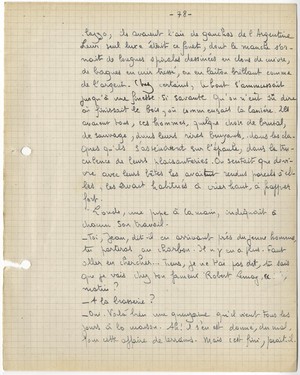 - 78 -
ils avaient l'air de gauchos de l'Argentine.
Leur seul luxe était ce fouet, dont le manche s'or-
nait de bagues spirales dessinées en clous de cuivre,
de bagues en cuir tressé, ou en laiton brillant comme
de l'argent. Chez certains, le bout s'amenuisait
jusqu'à une finesse si savante qu'on n'eût su dire
où finissait le bois, où commençait la lanière. Ils
avaient tous, ces hommes, quelque chose de brutal,
de sauvage, dans leurs rires bruyants, dans les cla-
ques qu'ils s'assénaient sur l'épaule, dans la tru-
culence de leurs plaisanteries. On sentait que de vi-
vre avec leurs bêtes les avait rendus pareils à el-
les, les avait habitués à crier haut, à frapper
fort.
une pipe à la main, indiquait à
chacun son travail.
- Toi, Jean, dit-il en arrivant près du jeune homme,
tu porteras au charbon. Il n'y en a plus. Faut
aller en chercher. Tiens, je ne t'ai pas dit, tu sais
que je vais chez ton fameux Robert ce
matin ?
- A la brasserie ?
- Oui. Voilà bien une quinzaine qu'il vient tous les
jours à la maison. Ah ! il s'en est donné, du mal,
pour cette affaire de terrains. Mais c'est fini, paraît-il.